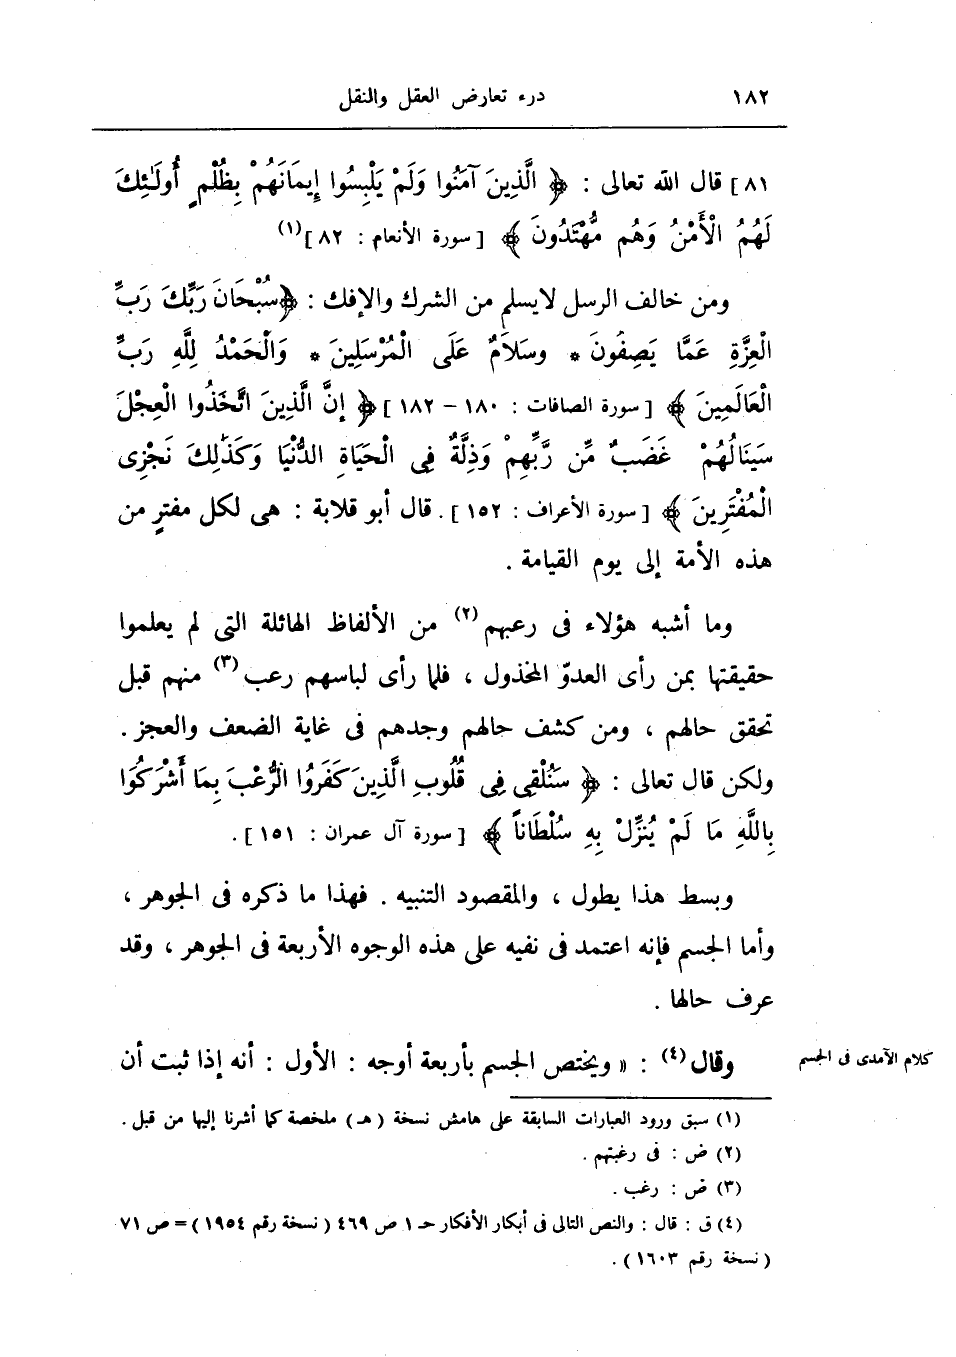 ١٨٢ درء تعارض العقل والنقل
٨١] قال الله تعالى : ﴿ الَّذِينَ آمَنُوا وَلَمْ يَلْبِسُوا إِيمَانَهُمْ بِظُلْمٍ أُولَٰئِكَ
لَهُمُ الْأَمْنُ وَهُم مُّهْتَدُونَ ﴾ [ سورة الأنعام : ٨٢ ](١)
ومن خالف الرسل لايسلم من الشرك والإفك : ﴿سُبْحَانَ رَبِّكَ رَبِّ
الْعِزَّةِ عَمَّا يَصِفُونَ * وسَلَامٌ عَلَى الْمُرْسَلِينَ * وَالْحَمْدُ لِلَّهِ رَبِّ
الْعَالَمِينَ ﴾ [ سورة الصافات : ١٨٠ – ١٨٢ ] ﴿ إِنَّ الَّذِينَ اتَّخَذُوا الْعِجْلَ
سَيَنَالُهُمْ غَضَبٌ مِّن رَّبِّهِمْ وَذِلَّةٌ فِى الْحَيَاةِ الدُّنْيَا وَكَذَٰلِكَ نَجْزِى
الْمُفْتَرِينَ ﴾ [ سورة الأعراف : ١٥٢ ] . قال أبو قلابة : هى لكل مفترٍ من
هذه الأمة إلى يوم القيامة .
وما أشبه هؤلاء فى رعبهم(٢) من الألفاظ الهائلة التى لم يعلموا
حقيقتها بمن رأى العدوّ المخذول ، فلما رأى لباسهم رعب(٣) منهم قبل
تحقق حالهم ، ومن كشف حالهم وجدهم فى غاية الضعف والعجز .
ولكن قال تعالى : ﴿ سَنُلْقِى فِى قُلُوبِ الَّذِينَ كَفَرُوا الرُّعْبَ بِمَا أَشْرَكُوا
بِاللَّهِ مَا لَمْ يُنَزِّلْ بِهِ سُلْطَاناً ﴾ [ سورة آل عمران : ١٥١ ] .
وبسط هذا يطول ، والمقصود التنبيه . فهذا ما ذكره فى الجوهر ،
وأما الجسم فإنه اعتمد فى نفيه على هذه الوجوه الأربعة فى الجوهر ، وقد
عرف حالها .
وقال(٤) : « ويختص الجسم بأربعة أوجه : الأول : أنه إذا ثبت أن
كلام الآمدى فى الجسم
(١) سبق ورود العبارات السابقة على هامش نسخة ( هـ ) ملخصة كما أشرنا إليها من قبل .
(٢) ض : فى رغبتهم .
(٣) ض : رغب .
(٤) ق : قال : والنص التالى فى أبكار الأفكار حـ ١ ص ٤٦٩ ( نسخة رقم ١٩٥٤ ) = ص ٧١
( نسخة رقم ١٦٠٣ ) .